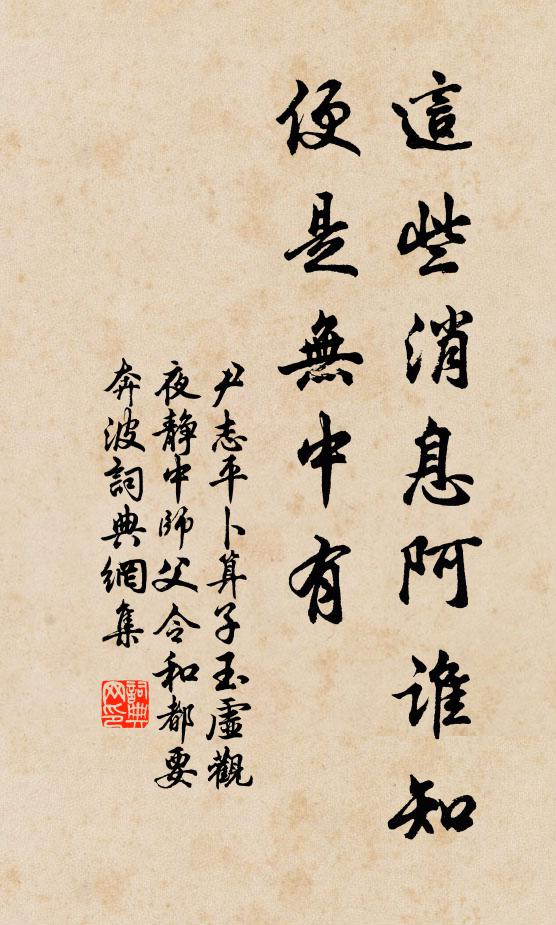 這些消息阿誰知
便是無中有
尹志平卜算子玉虛觀
夜靜中師父令和都要
奔波詞典網集
詞典網印